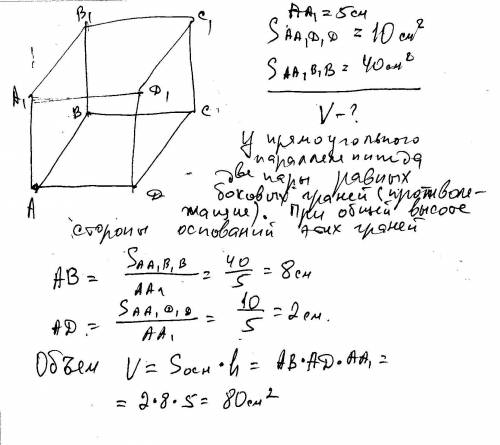 B₁ C₁
A₁ D₁
B C
A D
AA₁ = 5см
S AA₁D₁D = 10 см²
S AA₁B₁B = 40 см²
V - ?
У прямоугольного
параллелепипеда
две пары равных
боковых граней (противоле-
жащие). При общей высоте
стороны оснований этих граней
AB = S AA₁B₁B / AA₁ = 40/5 = 8 см
AD = S AA₁D₁D / AA₁ = 10/5 = 2 см.
Объем V = Sосн · h = AB · AD · AA₁ =
= 2 · 8 · 5 = 80 см²